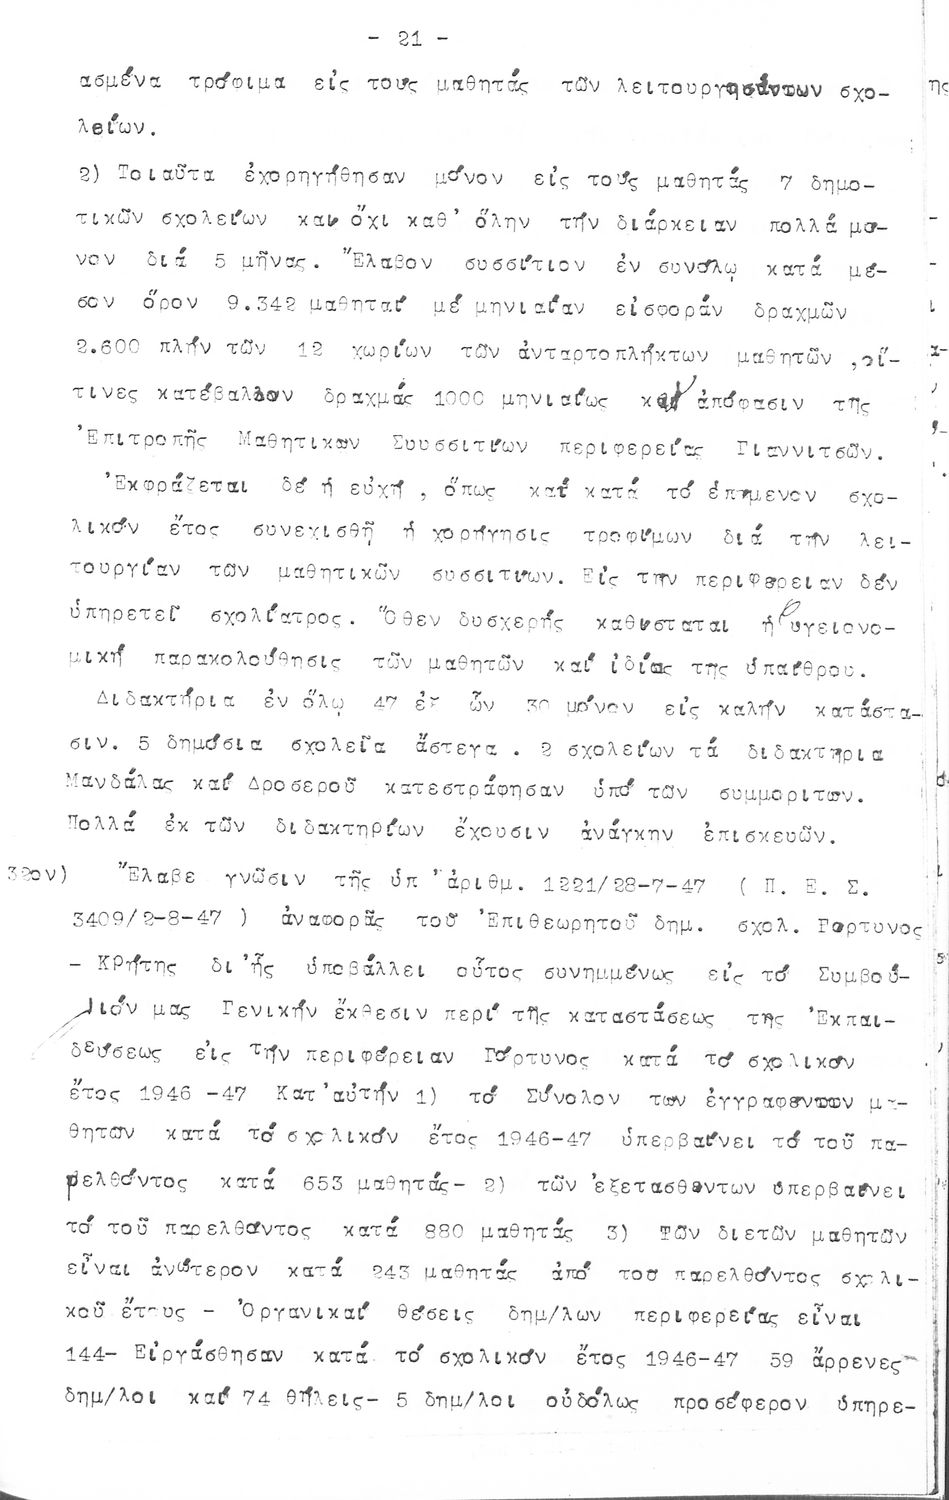 - 21 -
ασμένα τρόφιμα εἰς τούς μαθητάς τῶν λειτουργησάντων σχο-
λείων.
2) Τοιαῦτα ἐχορηγήθησαν μόνον εἰς τούς μαθητάς 7 δημο-
τικῶν σχολείων καί ὄχι καθ' ὅλην τήν διάρκειαν πολλά μό-
νον διά 5 μῆνας. Ἔλαβον συσσίτιον ἐν συνόλῳ κατά μέ-
σον ὅρον 9.342 μαθηταί μέ μηνιαίαν εἰσφοράν δραχμῶν
2.600 πλήν τῶν 12 χωρίων τῶν ἀνταρτοπλήκτων μαθητῶν ,οἵ-
τινες κατέβαλλον δραχμάς 1000 μηνιαίως κατ' ἀπόφασιν τῆς
Ἐπιτροπῆς Μαθητικων Συυσσιτίων περιφερείας Γιαννιτσῶν.
Ἐκφράζεται δέ ἡ εὐχή , ὅπως καί κατά τό ἑπόμενον σχο-
λικόν ἔτος συνεχισθῆ ἡ χορήγησις τροφίμων διά τήν λει-
τουργίαν τῶν μαθητικῶν συσσιτίων. Εἰς την περιφέρειαν δέν
ὑπηρετεῖ σχολίατρος. Ὅθεν δυσχερής καθίσταται ἡ ὑγειονο-
μική παρακολούθησις τῶν μαθητῶν καί ἰδίας της ὑπαίθρου.
Διδακτήρια ἐν ὅλῳ 47 ἐξ ὧν 30 μόνον εἰς καλήν κατάστα-
σιν. 5 δημόσια σχολεῖα ἄστεγα . 2 σχολείων τά διδακτήρια
Μανδάλας καί Δροσεροῦ κατεστράφησαν ὑπό τῶν συμμοριτων.
Πολλά ἐκ τῶν διδακτηρίων ἔχουσιν ἀνάγκην ἐπισκευῶν.
32ον) Ἔλαβε γνῶσιν τῆς ὑπ ' ἀριθμ. 1221/28-7-47 ( Π. Ε. Σ.
3409/2-8-47 ) ἀναφορᾶς τοῦ Ἐπιθεωρητοῦ δημ. σχολ. Γορτυνος
- ΚΡήτης δι 'ἧς ὑποβάλλει οὗτος συνημμένως εἰς τό Συμβού-
λιόν μας Γενικήν ἔκθεσιν περί τῆς καταστάσεως της Ἐκπαι-
δεύσεως εἰς τήν περιφέρειαν Γόρτυνος κατά τό σχολικόν
ἔτος 1946 -47 Κατ'αὐτήν 1) τό Σύνολον των ἐγγραφέντων μα-
θητων κατά τό σχολικόν ἔτος 1946-47 ὑπερβαίνει τό τοῦ πα-
ρελθόντος κατά 653 μαθητάς- 2) τῶν ἐξετασθέντων ὑπερβαίνει
τό τοῦ παρελθόντος κατά 880 μαθητάς 3) Τῶν διετῶν μαθητῶν
εἶναι ἀνώτερον κατά 243 μαθητάς ἀπό του παρελθόντος σχολι-
κοῦ ἔτους - Ὀργανικαί θέσεις δημ/λων περιφερείας εἶναι
144- Εἰργάσθησαν κατά τό σχολικόν ἔτος 1946-47 59 ἄρρενες
δημ/λοι καί 74 θήλεις- 5 δημ/λοι οὐδόλως προσέφερον ὑπηρε-